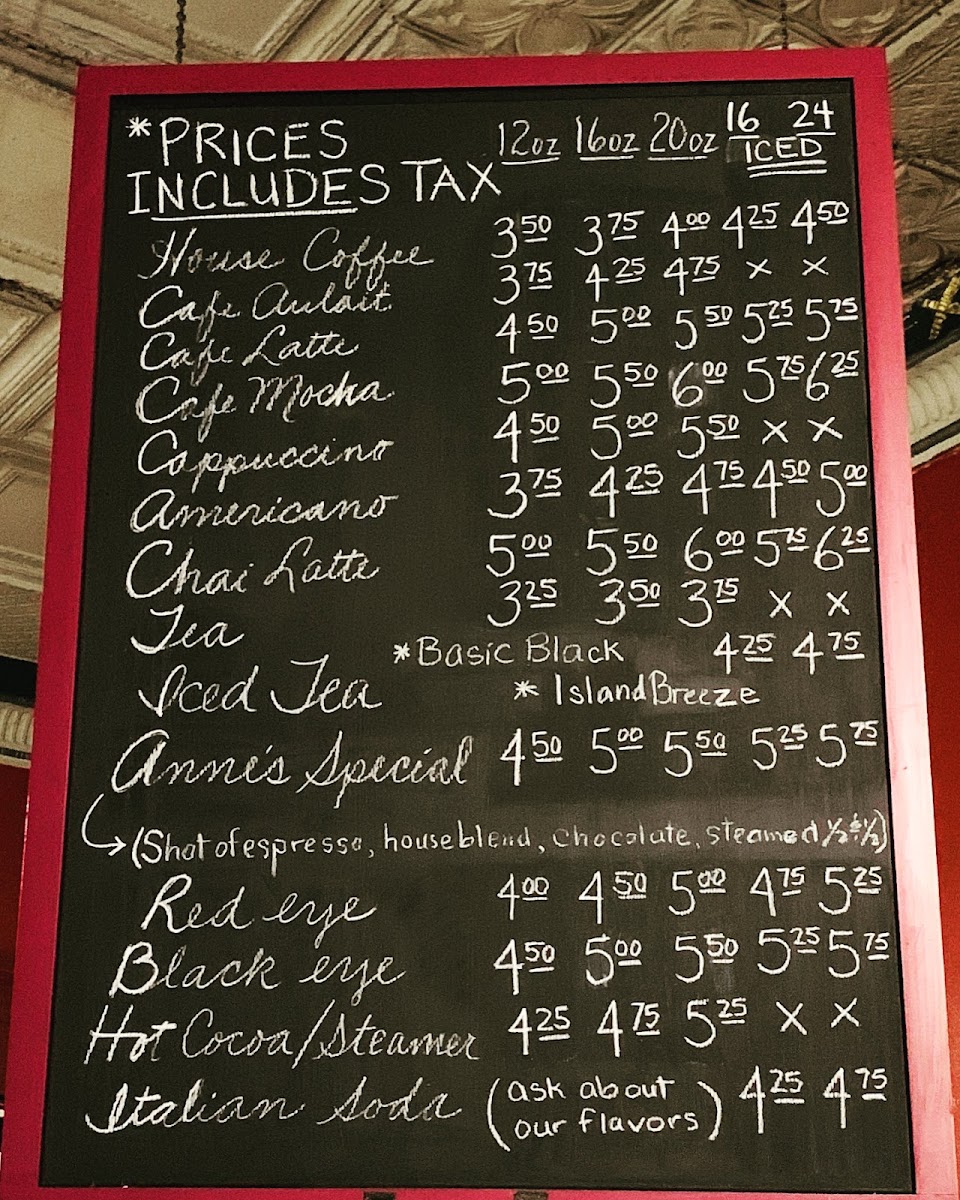 *PRICES 12oz 16oz 20oz 16 24
INCLUDES TAX ICED
House Coffee 3.50 3.75 4.00 4.25 4.50
Cafe Aulait 3.75 4.25 4.75 x x
Cafe Latte 4.50 5.00 5.50 5.25 5.75
Cafe Mocha 5.00 5.50 6.00 5.75 6.25
Cappuccino 4.50 5.00 5.50 x x
Americano 3.75 4.25 4.75 4.50 5.00
Chai Latte 5.00 5.50 6.00 5.75 6.25
Tea 3.25 3.50 3.75 x x
*Basic Black 4.25 4.75
Iced Tea * Island Breeze
Anne's Special 4.50 5.00 5.50 5.25 5.75
(Shot of espresso, house blend, chocolate, steamed ½ & ½)
Red eye 4.00 4.50 5.00 4.75 5.25
Black eye 4.50 5.00 5.50 5.25 5.75
Hot Cocoa/Steamer 4.25 4.75 5.25 x x
Italian Soda (ask about our flavors) 4.25 4.75